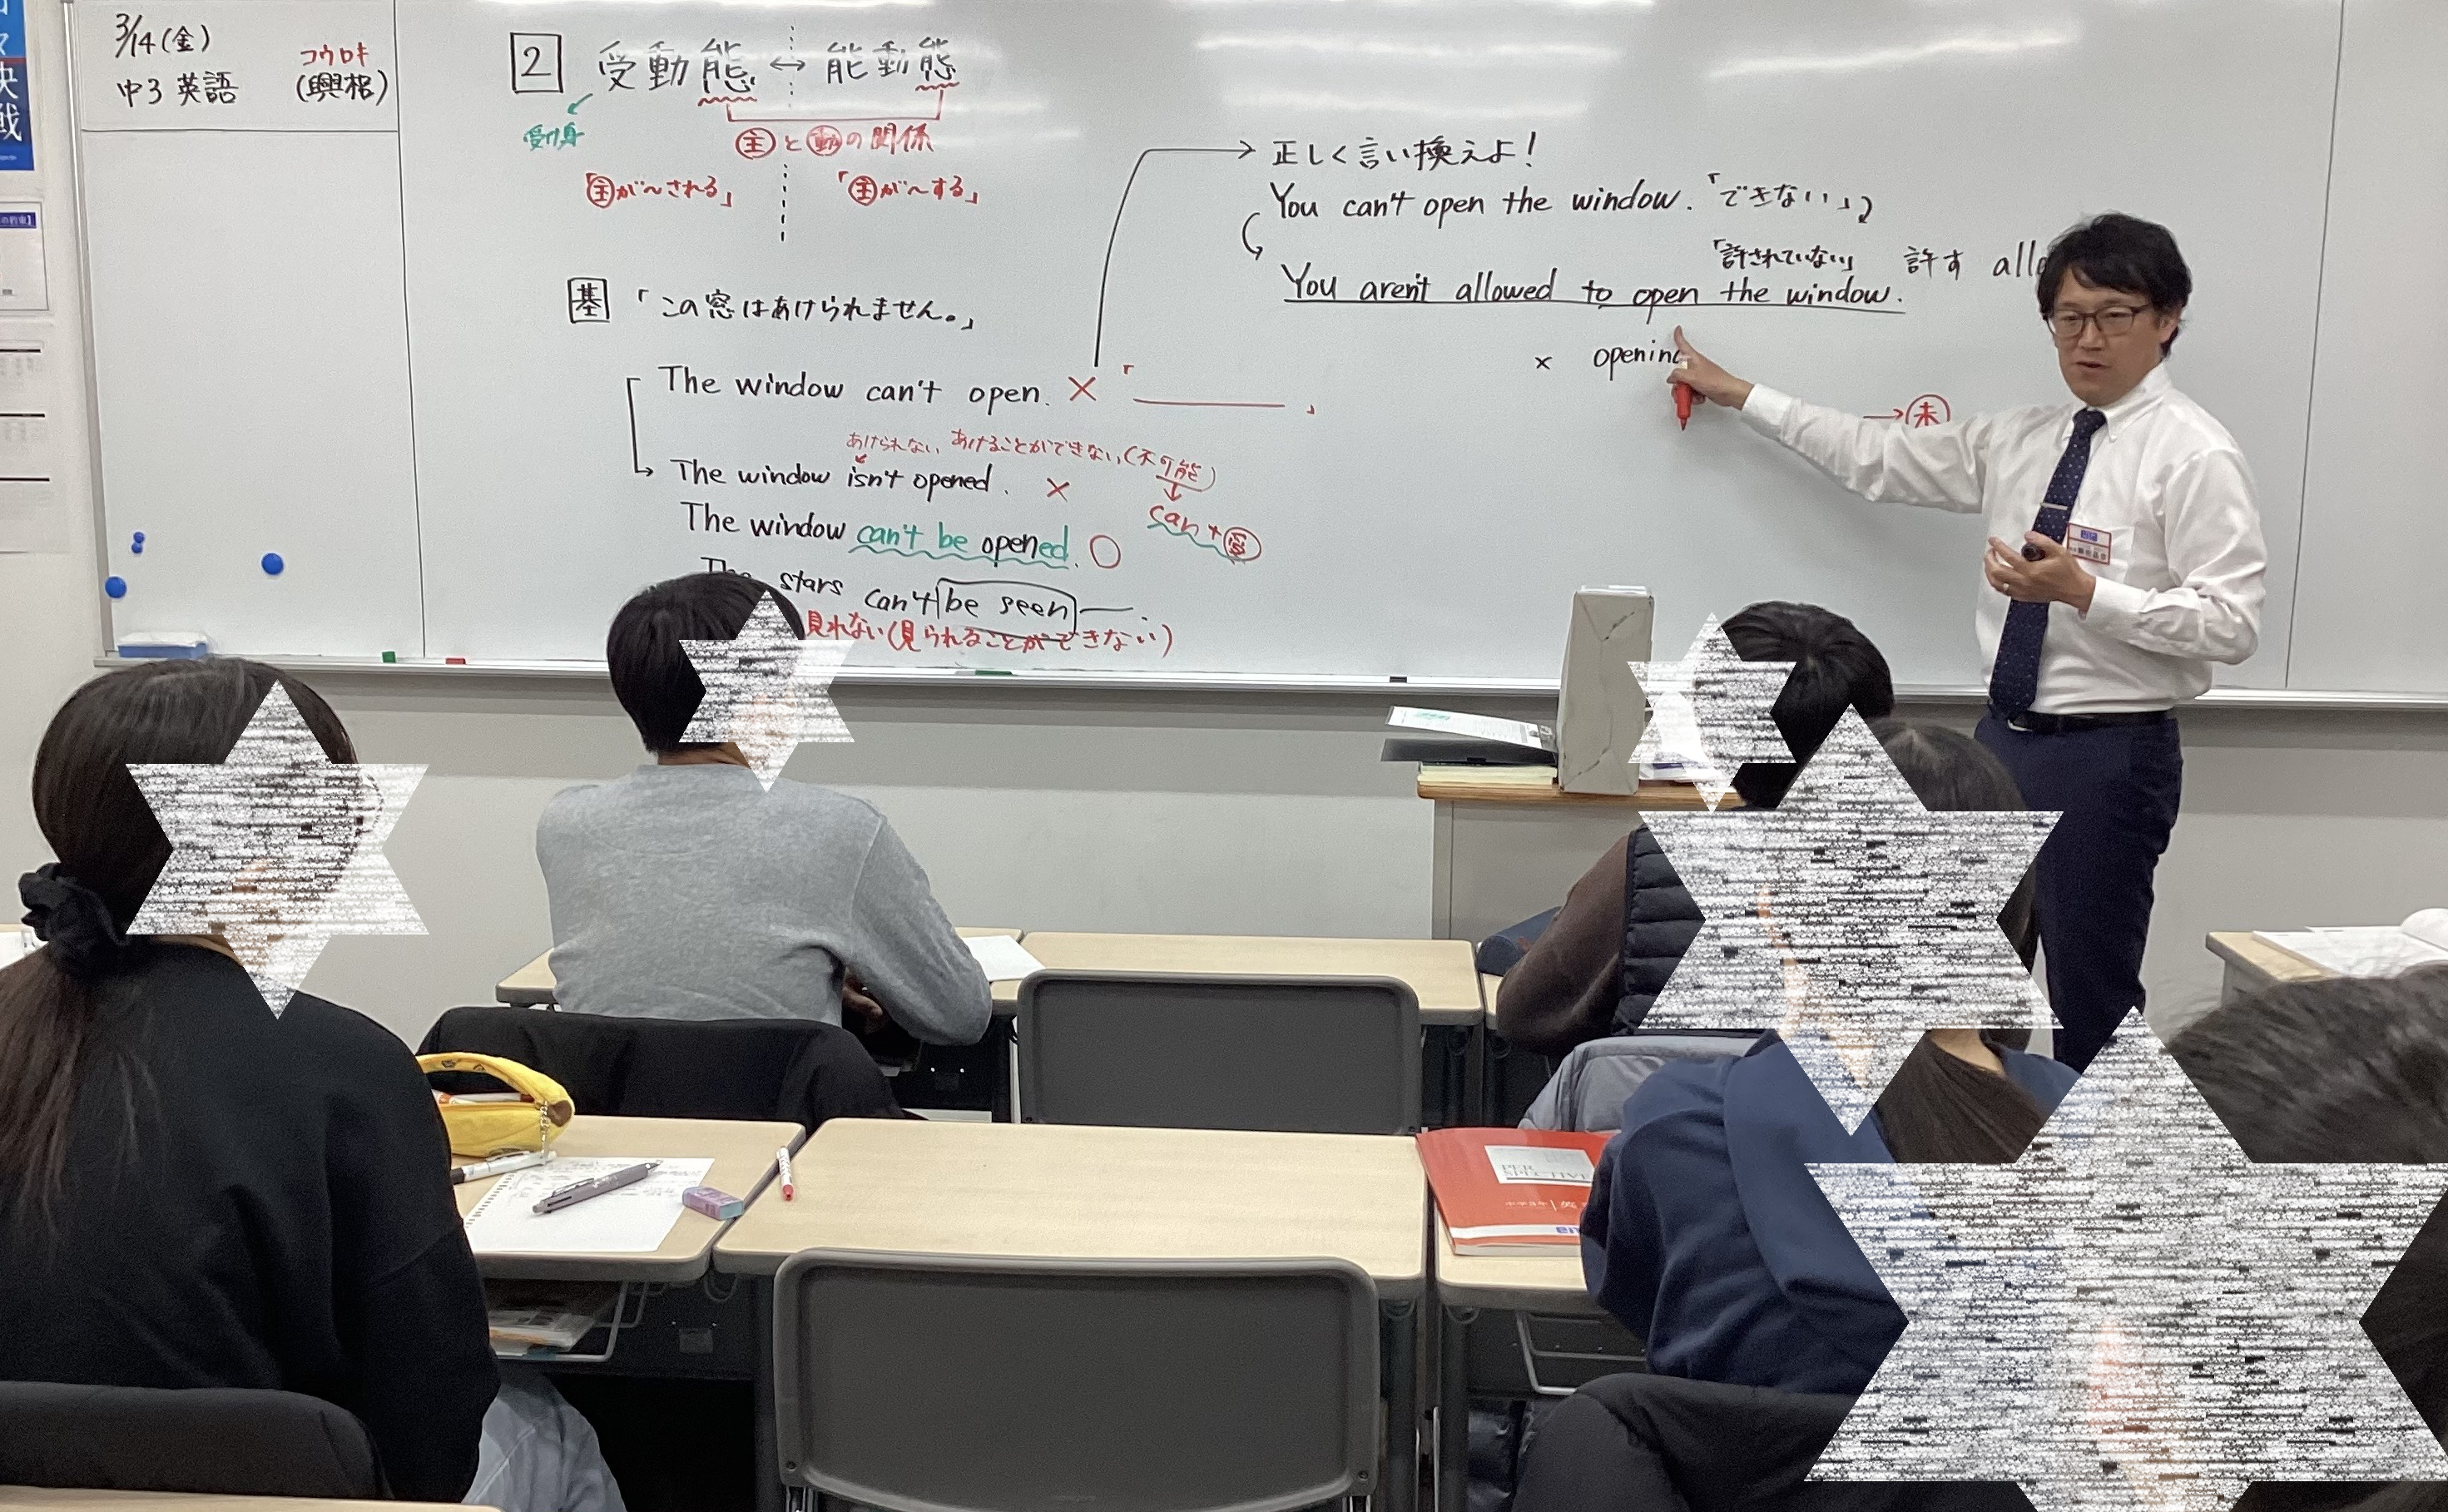 3/14(金)
中3 英語
コウロキ
(興梠)
2 受動態 ↔ 能動態
受け身
主と動の関係
「主が〜される」
「主が〜する」
基 「この窓はあけられません。」
The window can't open. × 「 」
あけられない あけることができない(不可能)
The window isn't opened. ×
can + 受
The window can't be opened. ○
The stars can't be seen ― .
見れない(見られることができない)
正しく言い換えよ!
You can't open the window. 「できない」
「許されていない」 許す
You aren't allowed to open the window.
× opening
→ 未
決戦